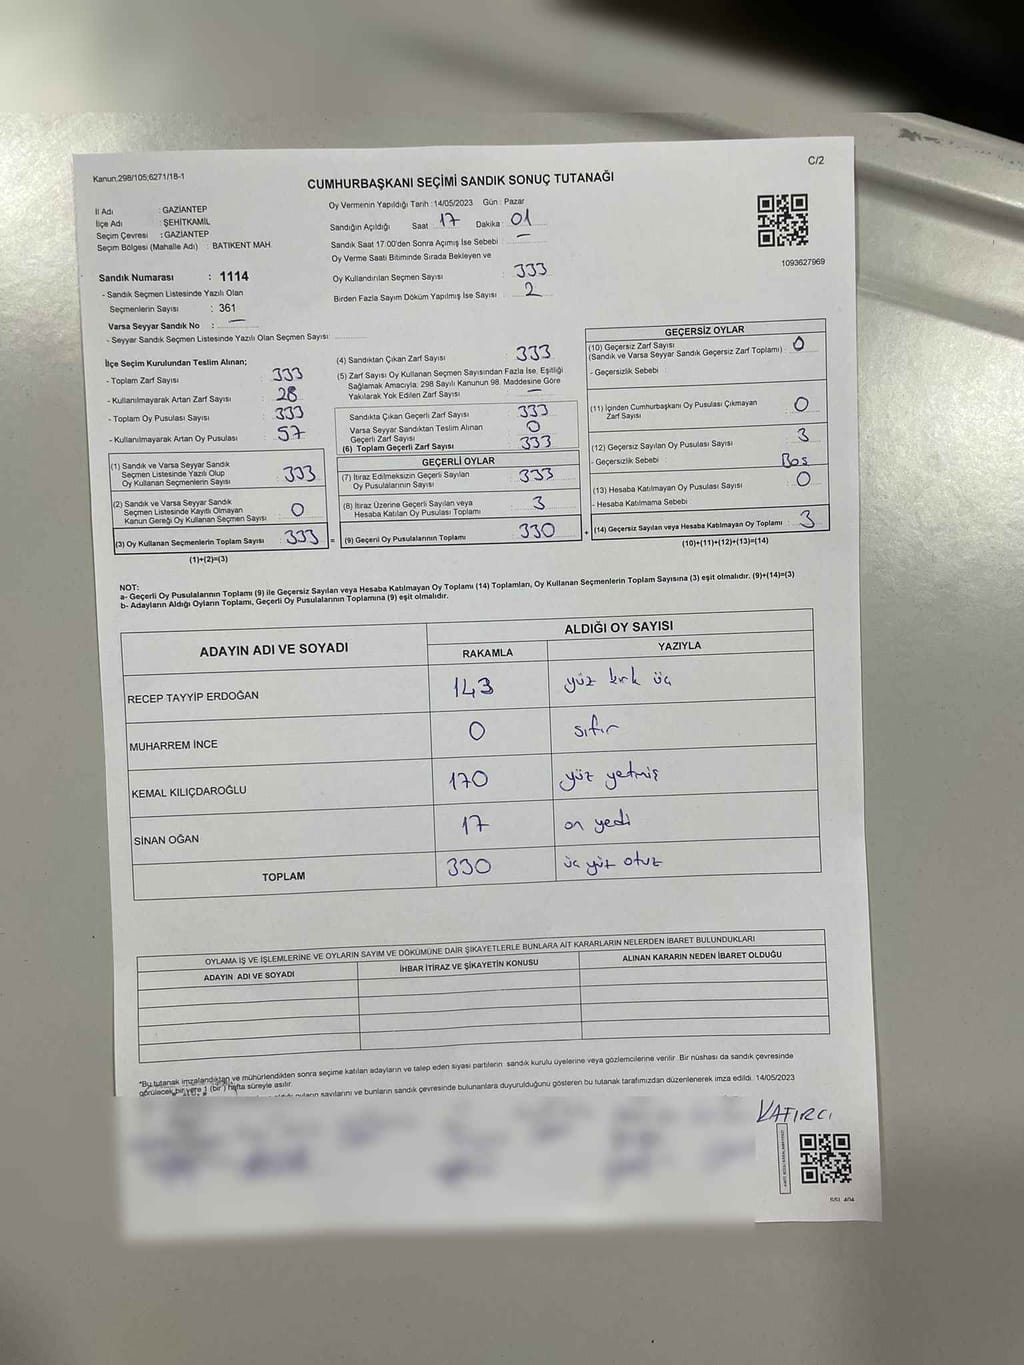 Kanun:298/105;6271/18-1
C/2
CUMHURBAŞKANI SEÇİMİ SANDIK SONUÇ TUTANAĞI
İl Adı : GAZİANTEP
İlçe Adı : ŞEHİTKAMİL
Seçim Çevresi : GAZİANTEP
Seçim Bölgesi (Mahalle Adı) : BATIKENT MAH.
Oy Vermenin Yapıldığı Tarih : 14/05/2023 Gün : Pazar
Sandığın Açıldığı Saat 17 Dakika 01
Sandık Saat 17:00'den Sonra Açımış İse Sebebi –
Oy Verme Saati Bitiminde Sırada Bekleyen ve
Oy Kullandırılan Seçmen Sayısı 333
Birden Fazla Sayım Döküm Yapılmış İse Sayısı 2
1093627969
Sandık Numarası : 1114
- Sandık Seçmen Listesinde Yazılı Olan
Seçmenlerin Sayısı : 361
Varsa Seyyar Sandık No : –
- Seyyar Sandık Seçmen Listesinde Yazılı Olan Seçmen Sayısı
İlçe Seçim Kurulundan Teslim Alınan;
- Toplam Zarf Sayısı : 333
- Kullanılmayarak Artan Zarf Sayısı : 28
- Toplam Oy Pusulası Sayısı : 333
- Kullanılmayarak Artan Oy Pusulası : 57
(1) Sandık ve Varsa Seyyar Sandık
Seçmen Listesinde Yazılı Olup
Oy Kullanan Seçmenlerin Sayısı : 333
(2) Sandık ve Varsa Seyyar Sandık
Seçmen Listesinde Kayıtlı Olmayan
Kanun Gereği Oy Kullanan Seçmen Sayısı : 0
(3) Oy Kullanan Seçmenlerin Toplam Sayısı : 333
(1)+(2)=(3)
(4) Sandıktan Çıkan Zarf Sayısı : 333
(5) Zarf Sayısı Oy Kullanan Seçmen Sayısından Fazla İse, Eşitliği
Sağlamak Amacıyla; 298 Sayılı Kanunun 98. Maddesine Göre
Yakılarak Yok Edilen Zarf Sayısı : –
Sandıkta Çıkan Geçerli Zarf Sayısı : 333
Varsa Seyyar Sandıktan Teslim Alınan
Geçerli Zarf Sayısı : 0
(6) Toplam Geçerli Zarf Sayısı : 333
GEÇERLİ OYLAR
(7) İtiraz Edilmeksizin Geçerli Sayılan
Oy Pusulalarının Sayısı : 333
(8) İtiraz Üzerine Geçerli Sayılan veya
Hesaba Katılan Oy Pusulası Toplamı : 3
= (9) Geçerli Oy Pusulalarının Toplamı : 330
GEÇERSİZ OYLAR
(10) Geçersiz Zarf Sayısı : 0
(Sandık ve Varsa Seyyar Sandık Geçersiz Zarf Toplamı)
- Geçersizlik Sebebi :
(11) İçinden Cumhurbaşkanı Oy Pusulası Çıkmayan
Zarf Sayısı : 0
(12) Geçersiz Sayılan Oy Pusulası Sayısı : 3
- Geçersizlik Sebebi : Boş
(13) Hesaba Katılmayan Oy Pusulası Sayısı : 0
- Hesaba Katılmama Sebebi :
+ (14) Geçersiz Sayılan veya Hesaba Katılmayan Oy Toplamı : 3
(10)+(11)+(12)+(13)=(14)
NOT:
a- Geçerli Oy Pusulalarının Toplamı (9) ile Geçersiz Sayılan veya Hesaba Katılmayan Oy Toplamı (14) Toplamları, Oy Kullanan Seçmenlerin Toplam Sayısına (3) eşit olmalıdır. (9)+(14)=(3)
b- Adayların Aldığı Oyların Toplamı, Geçerli Oy Pusulalarının Toplamına (9) eşit olmalıdır.
ADAYIN ADI VE SOYADI ALDIĞI OY SAYISI
RAKAMLA YAZIYLA
RECEP TAYYİP ERDOĞAN 143 yüz kırk üç
MUHARREM İNCE 0 sıfır
KEMAL KILIÇDAROĞLU 170 yüz yetmiş
SİNAN OĞAN 17 on yedi
TOPLAM 330 üç yüz otuz
OYLAMA İŞ VE İŞLEMLERİNE VE OYLARIN SAYIM VE DÖKÜMÜNE DAİR ŞİKAYETLERLE BUNLARA AİT KARARLARIN NELERDEN İBARET BULUNDUKLARI
ADAYIN ADI VE SOYADI İHBAR İTİRAZ VE ŞİKAYETİN KONUSU ALINAN KARARIN NEDEN İBARET OLDUĞU
*Bu tutanak imzalandıktan ve mühürlendikten sonra seçime katılan adayların ve talep eden siyasi partilerin sandık kurulu üyelerine veya gözlemcilerine verilir. Bir nüshası da sandık çevresinde
görülecek bir yere 1 (bir) hafta süreyle asılır.
sayılarını ve bunların sandık çevresinde bulunanlara duyurulduğunu gösteren bu tutanak tarafımızdan düzenlenerek imza edildi. 14/05/2023
KATIRCI